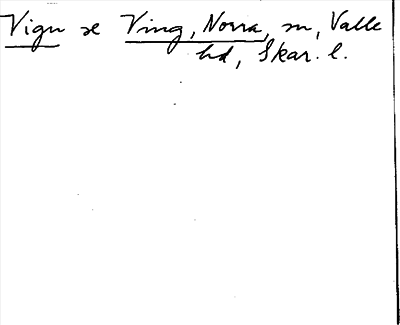 Vign se Ving, Norra, sn, Valle
hd, Skar. l.